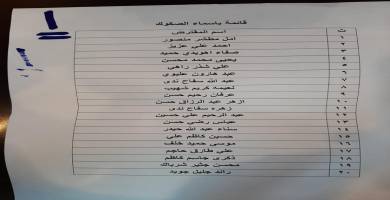 قائمة باسماء الصكوك
ت اسم المقترض
١ امل مظفر منصور
٢ احمد علي عزيز
٣ صفاء اهويدي حميد
٤ يحيى محمد محسن
٥ علي شذر راهي
٦ عبد هارون عليوي
٧ عبد الله سفاح ندى
٨ نعيمه كريم شهيب
٩ عرفان رحيم حسن
١٠ ازهر عبد الرزاق حسن
١١ زهره سفاح ندى
١٢ عبد الرحيم علي حسين
١٣ عباس رضي حسن
١٤ سناء عبد الله حيدر
١٥ حسين كاظم علي
١٦ موسى حميد خلف
١٧ علي طارق حاجم
١٨ ذكرى جاسم كاظم
١٩ محسن جثير شرياك
٢٠ رائد جليل جويد